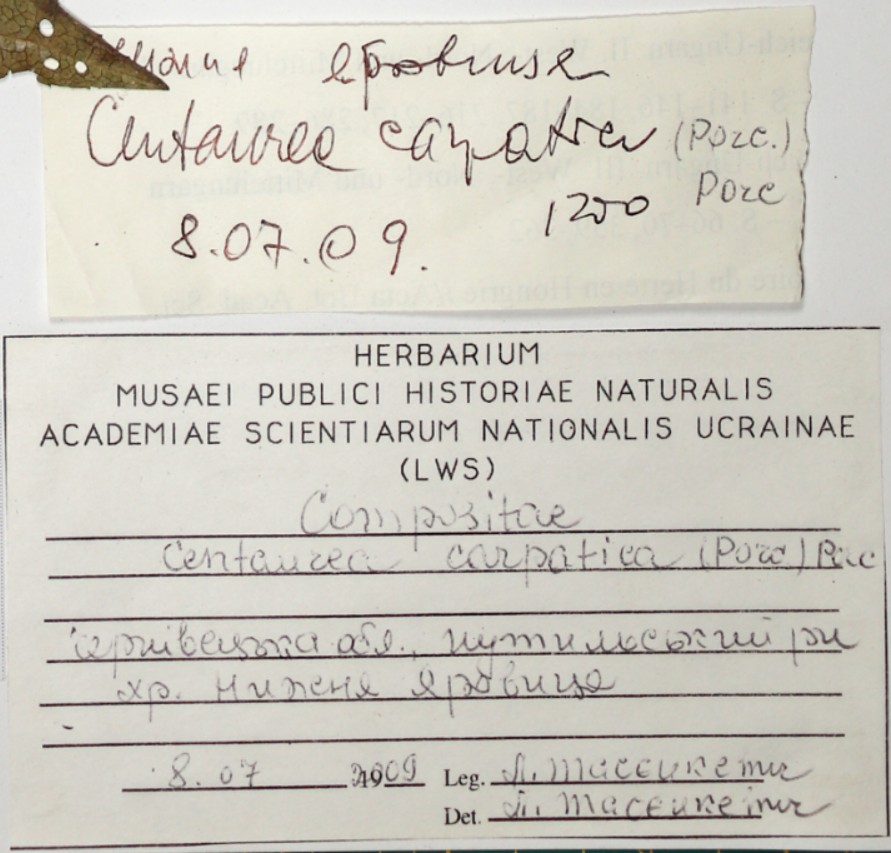 Яровиця
Centaurea carpatica (Porc.)
Porc
1200
8.07.09.
HERBARIUM
MUSAEI PUBLICI HISTORIAE NATURALIS
ACADEMIAE SCIENTIARUM NATIONALIS UCRAINAE
(LWS)
Compositae
Centaurea carpatica (Porc.) Porc
Чернівецька обл., Путильський р-н
хр. Нижня Яровиця
8.07 2009 Leg.
Det.